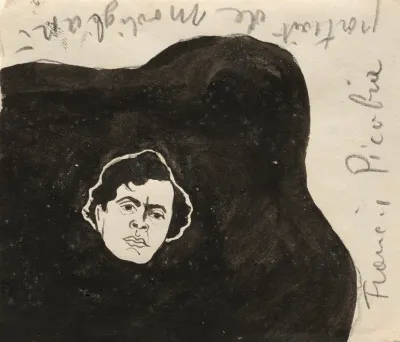 portrait de modigliani
Francis Picabia